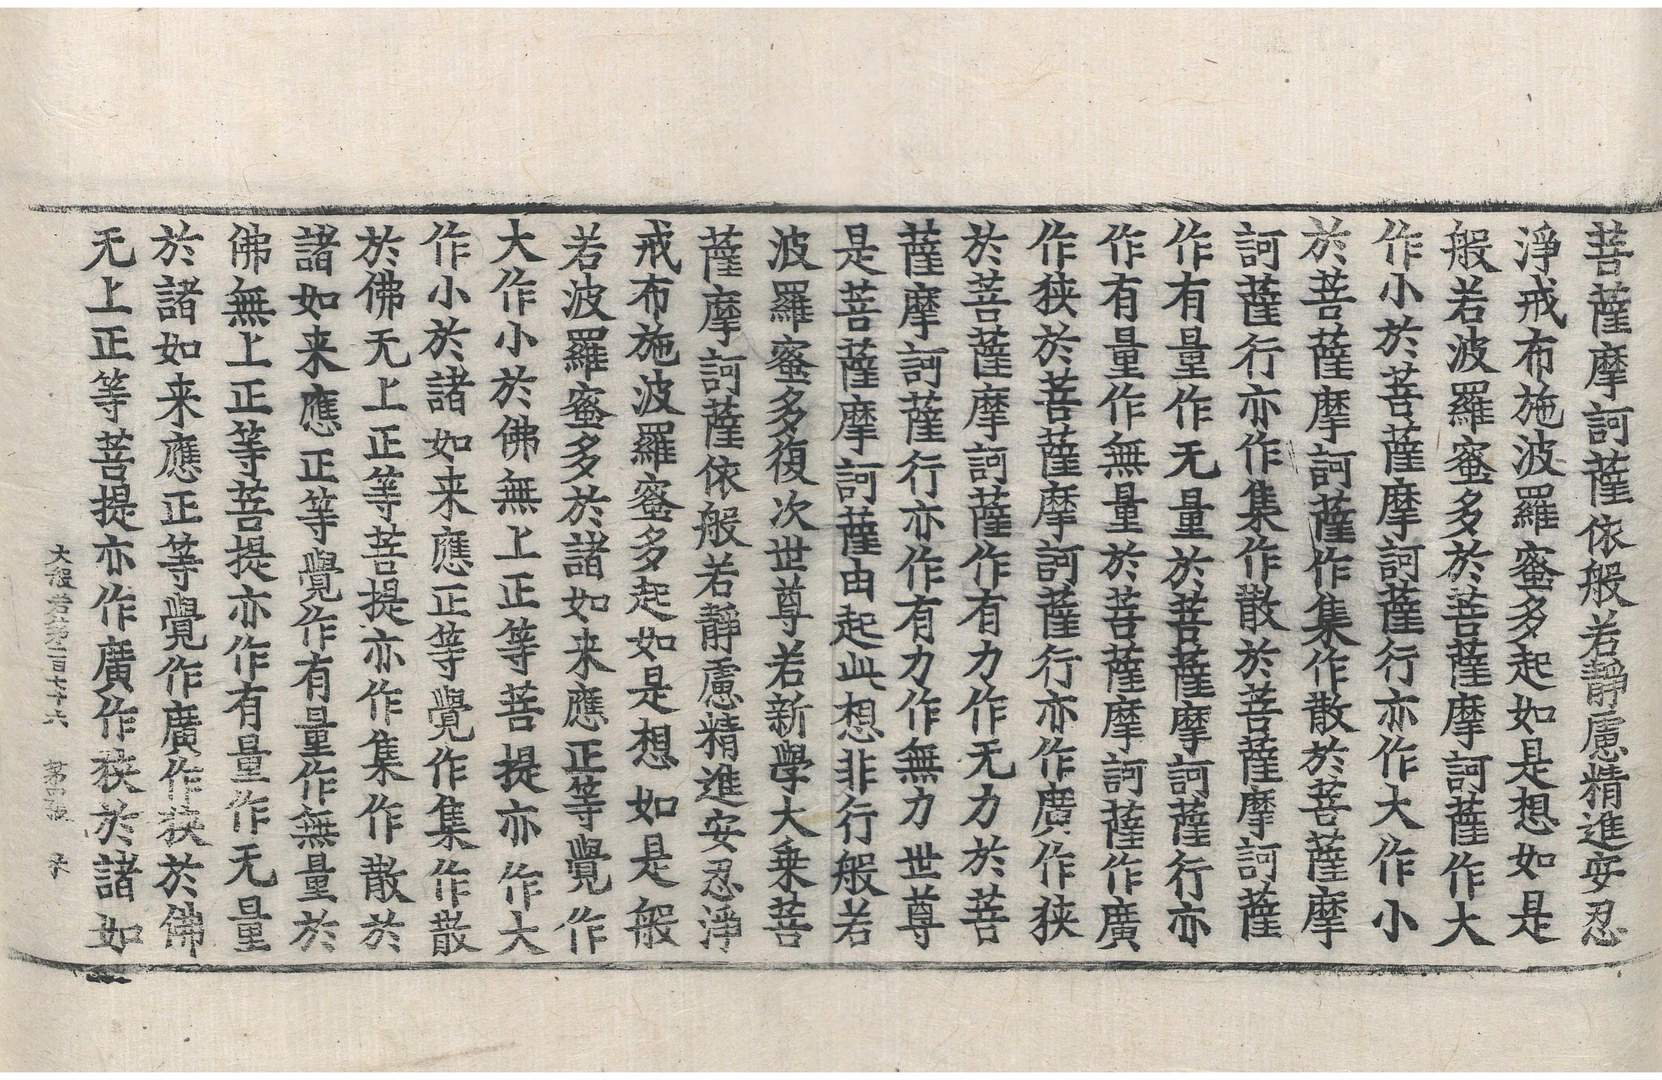 菩薩摩訶薩依般若靜慮精進安忍
淨戒布施波羅蜜多起如是想如是
般若波羅蜜多於菩薩摩訶薩作大
作小於菩薩摩訶薩行亦作大作小
於菩薩摩訶薩作集作散於菩薩摩
訶薩行亦作集作散於菩薩摩訶薩
作有量作无量於菩薩摩訶薩行亦
作有量作無量於菩薩摩訶薩作廣
作狹於菩薩摩訶薩行亦作廣作狹
於菩薩摩訶薩作有力作无力於菩
薩摩訶薩行亦作有力作無力世尊
是菩薩摩訶薩由起此想非行般若
波羅蜜多復次世尊若新學大乘菩
薩摩訶薩依般若靜慮精進安忍淨
戒布施波羅蜜多起如是想如是般
若波羅蜜多於諸如来應正等覺作
大作小於佛無上正等菩提亦作大
作小於諸如来應正等覺作集作散
於佛无上正等菩提亦作集作散於
諸如来應正等覺作有量作無量於
佛無上正等菩提亦作有量作无量
於諸如来應正等覺作廣作狹於佛
无上正等菩提亦作廣作狹於諸如
大般若第一百七十六 第四張